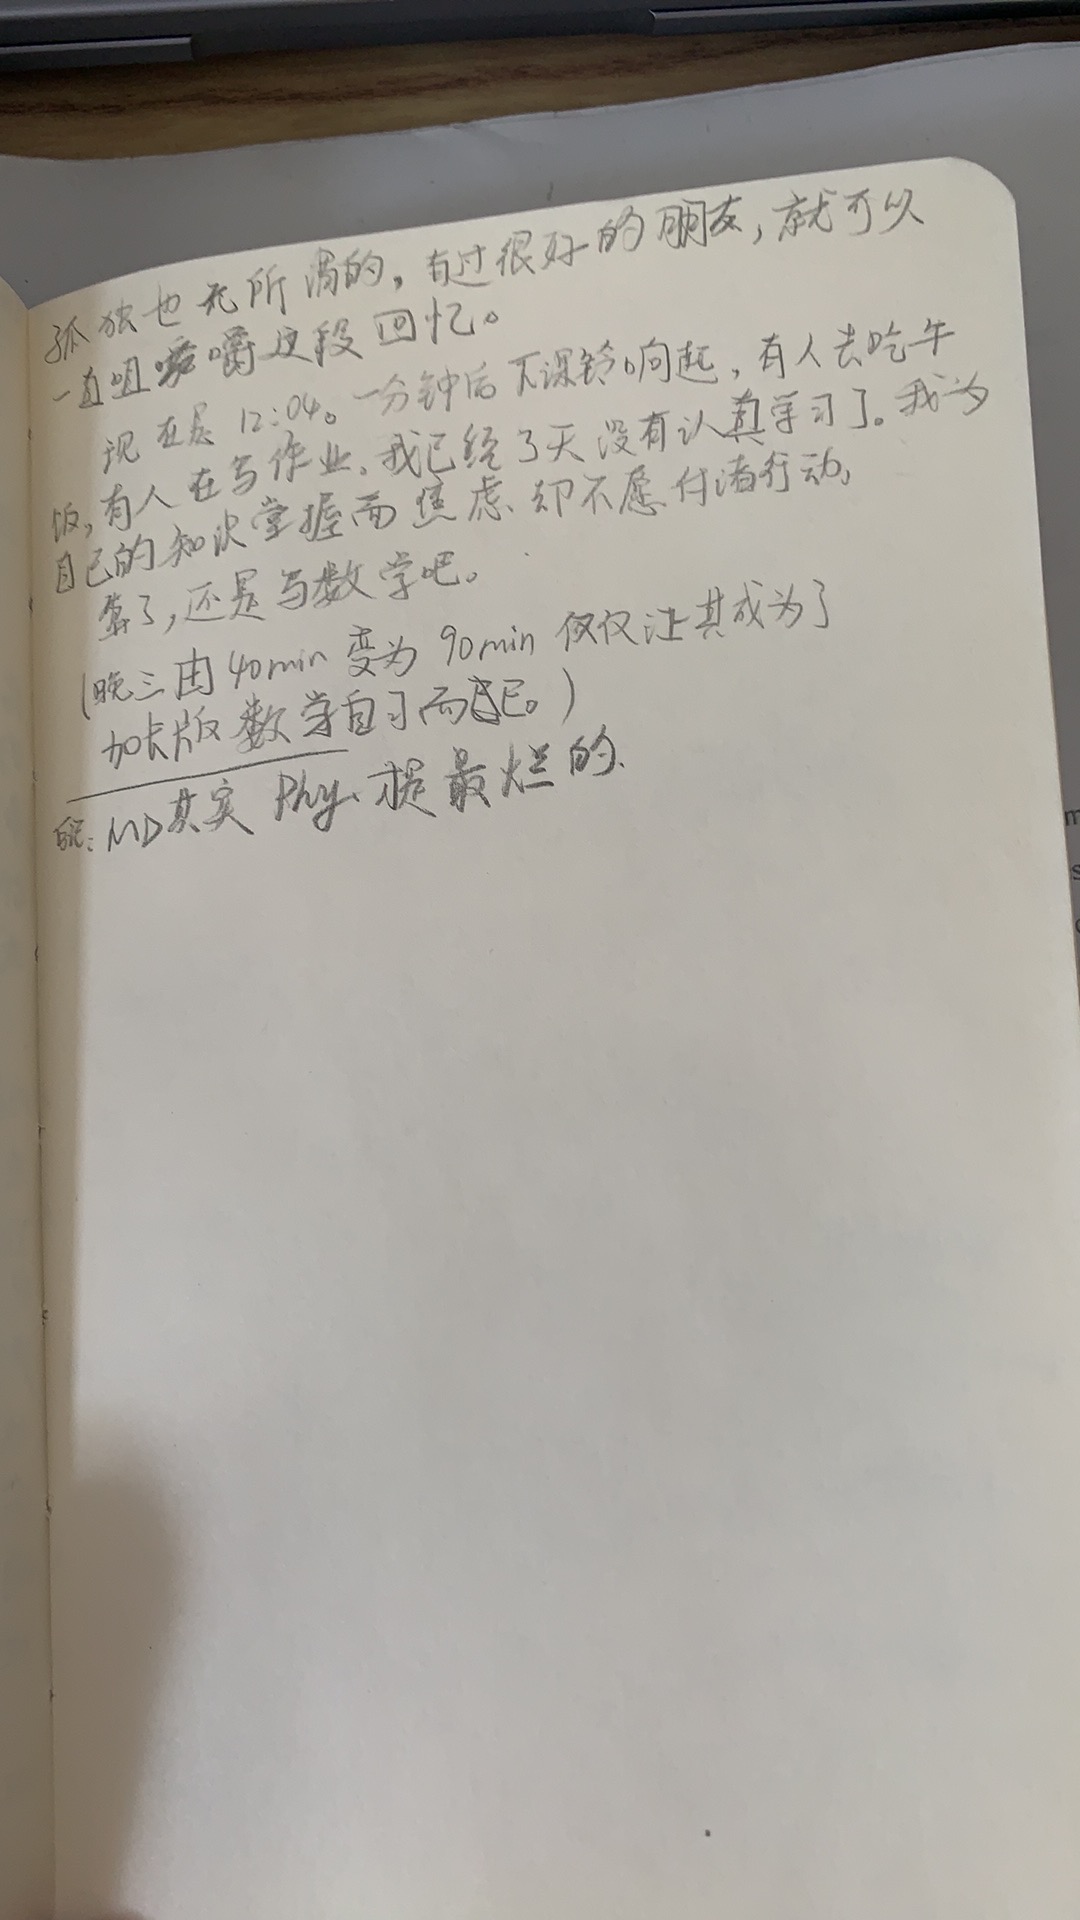 孤独也无所谓的，有过很好的朋友，就可以
一直咀嚼这段回忆。
现在是12:04。一分钟后下课铃响起，有人去吃午
饭，有人在写作业。我已经3天没有认真学习了。我为
自己的知识掌握而焦虑、却不愿付诸行动。
算了，还是写数学吧。
(晚三由40min变为90min仅仅让其成为了
加长版数学自习而已。)
MD其实Phy.才是最烂的.